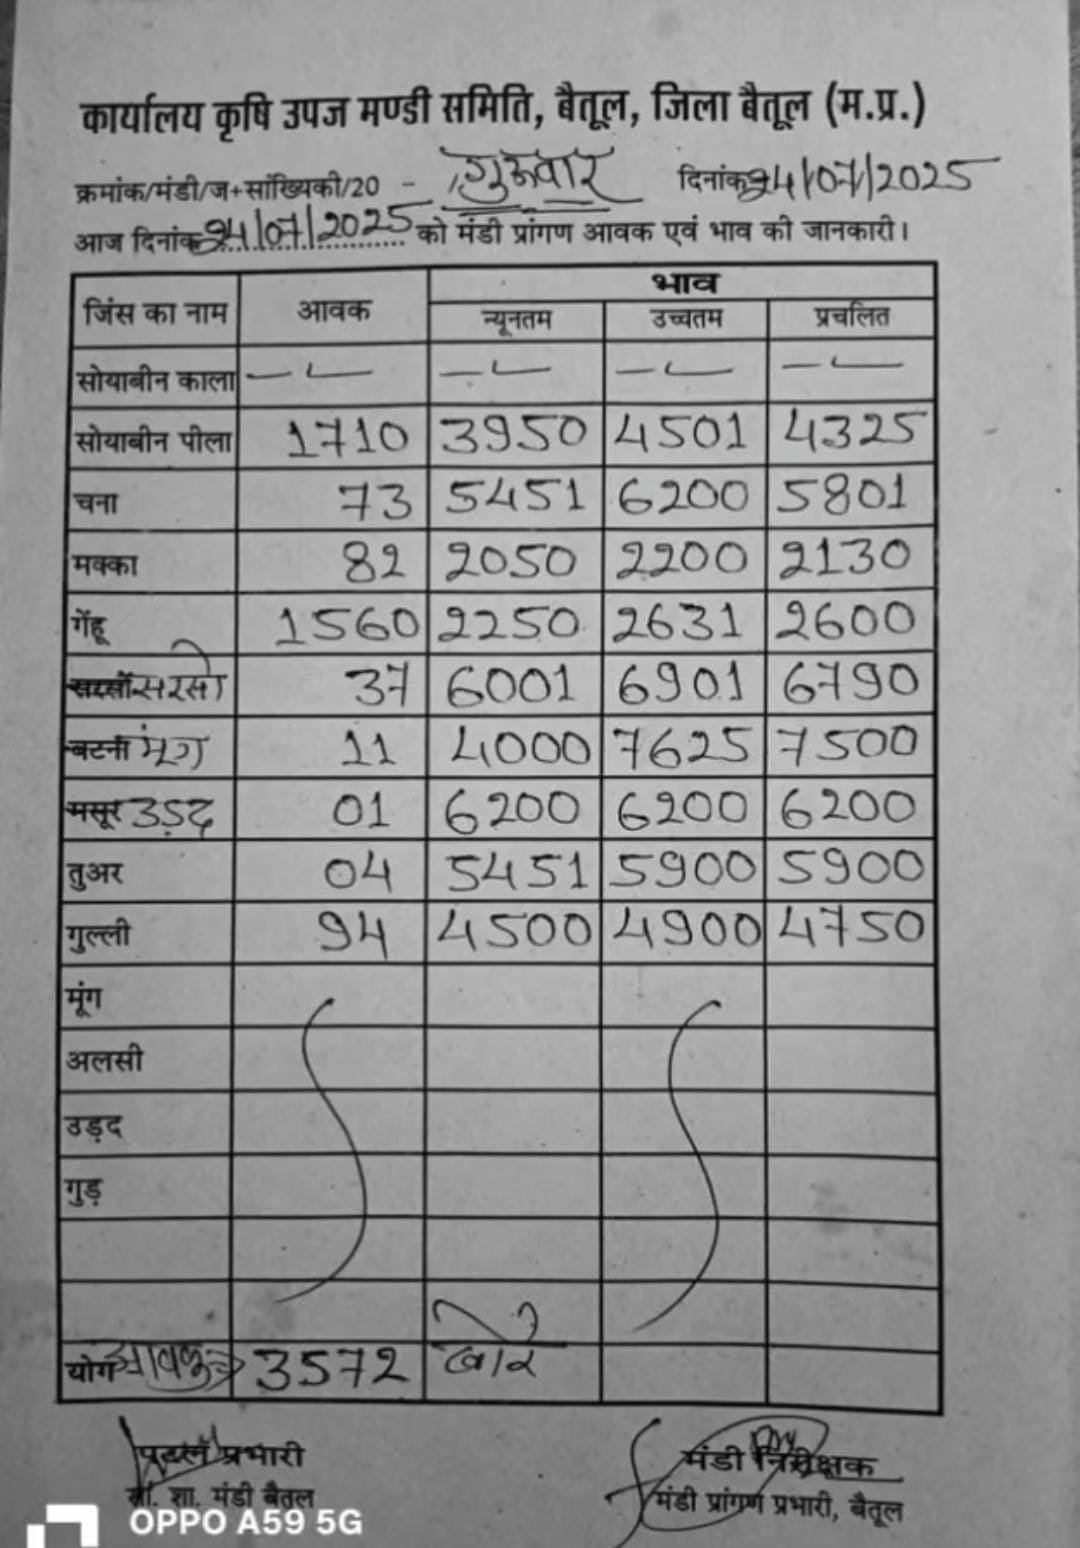 कार्यालय कृषि उपज मण्डी समिति, बैतूल, जिला बैतूल (म.प्र.)
क्रमांक/मंडी/ज+सांख्यिकी/20 - गुरूवार दिनांक 24/07/2025
आज दिनांक 24/07/2025 को मंडी प्रांगण आवक एवं भाव की जानकारी।
जिंस का नाम आवक भाव
न्यूनतम उच्चतम प्रचलित
सोयाबीन काला — — — —
सोयाबीन पीला 1710 3950 4501 4325
चना 73 5451 6200 5801
मक्का 82 2050 2200 2130
गेंहू 1560 2250 2631 2600
सरसों सरसों 37 6001 6901 6790
बटना मूंग 11 4000 7625 7500
मसूर उड़द 01 6200 6200 6200
तुअर 04 5451 5900 5900
गुल्ली 94 4500 4900 4750
मूंग
अलसी
उड़द
गुड़
योग आवक 3572 बोरे
प्रभारी मंडी निरीक्षक
सां. शा. मंडी बैतूल मंडी प्रांगण प्रभारी, बैतूल
OPPO A59 5G